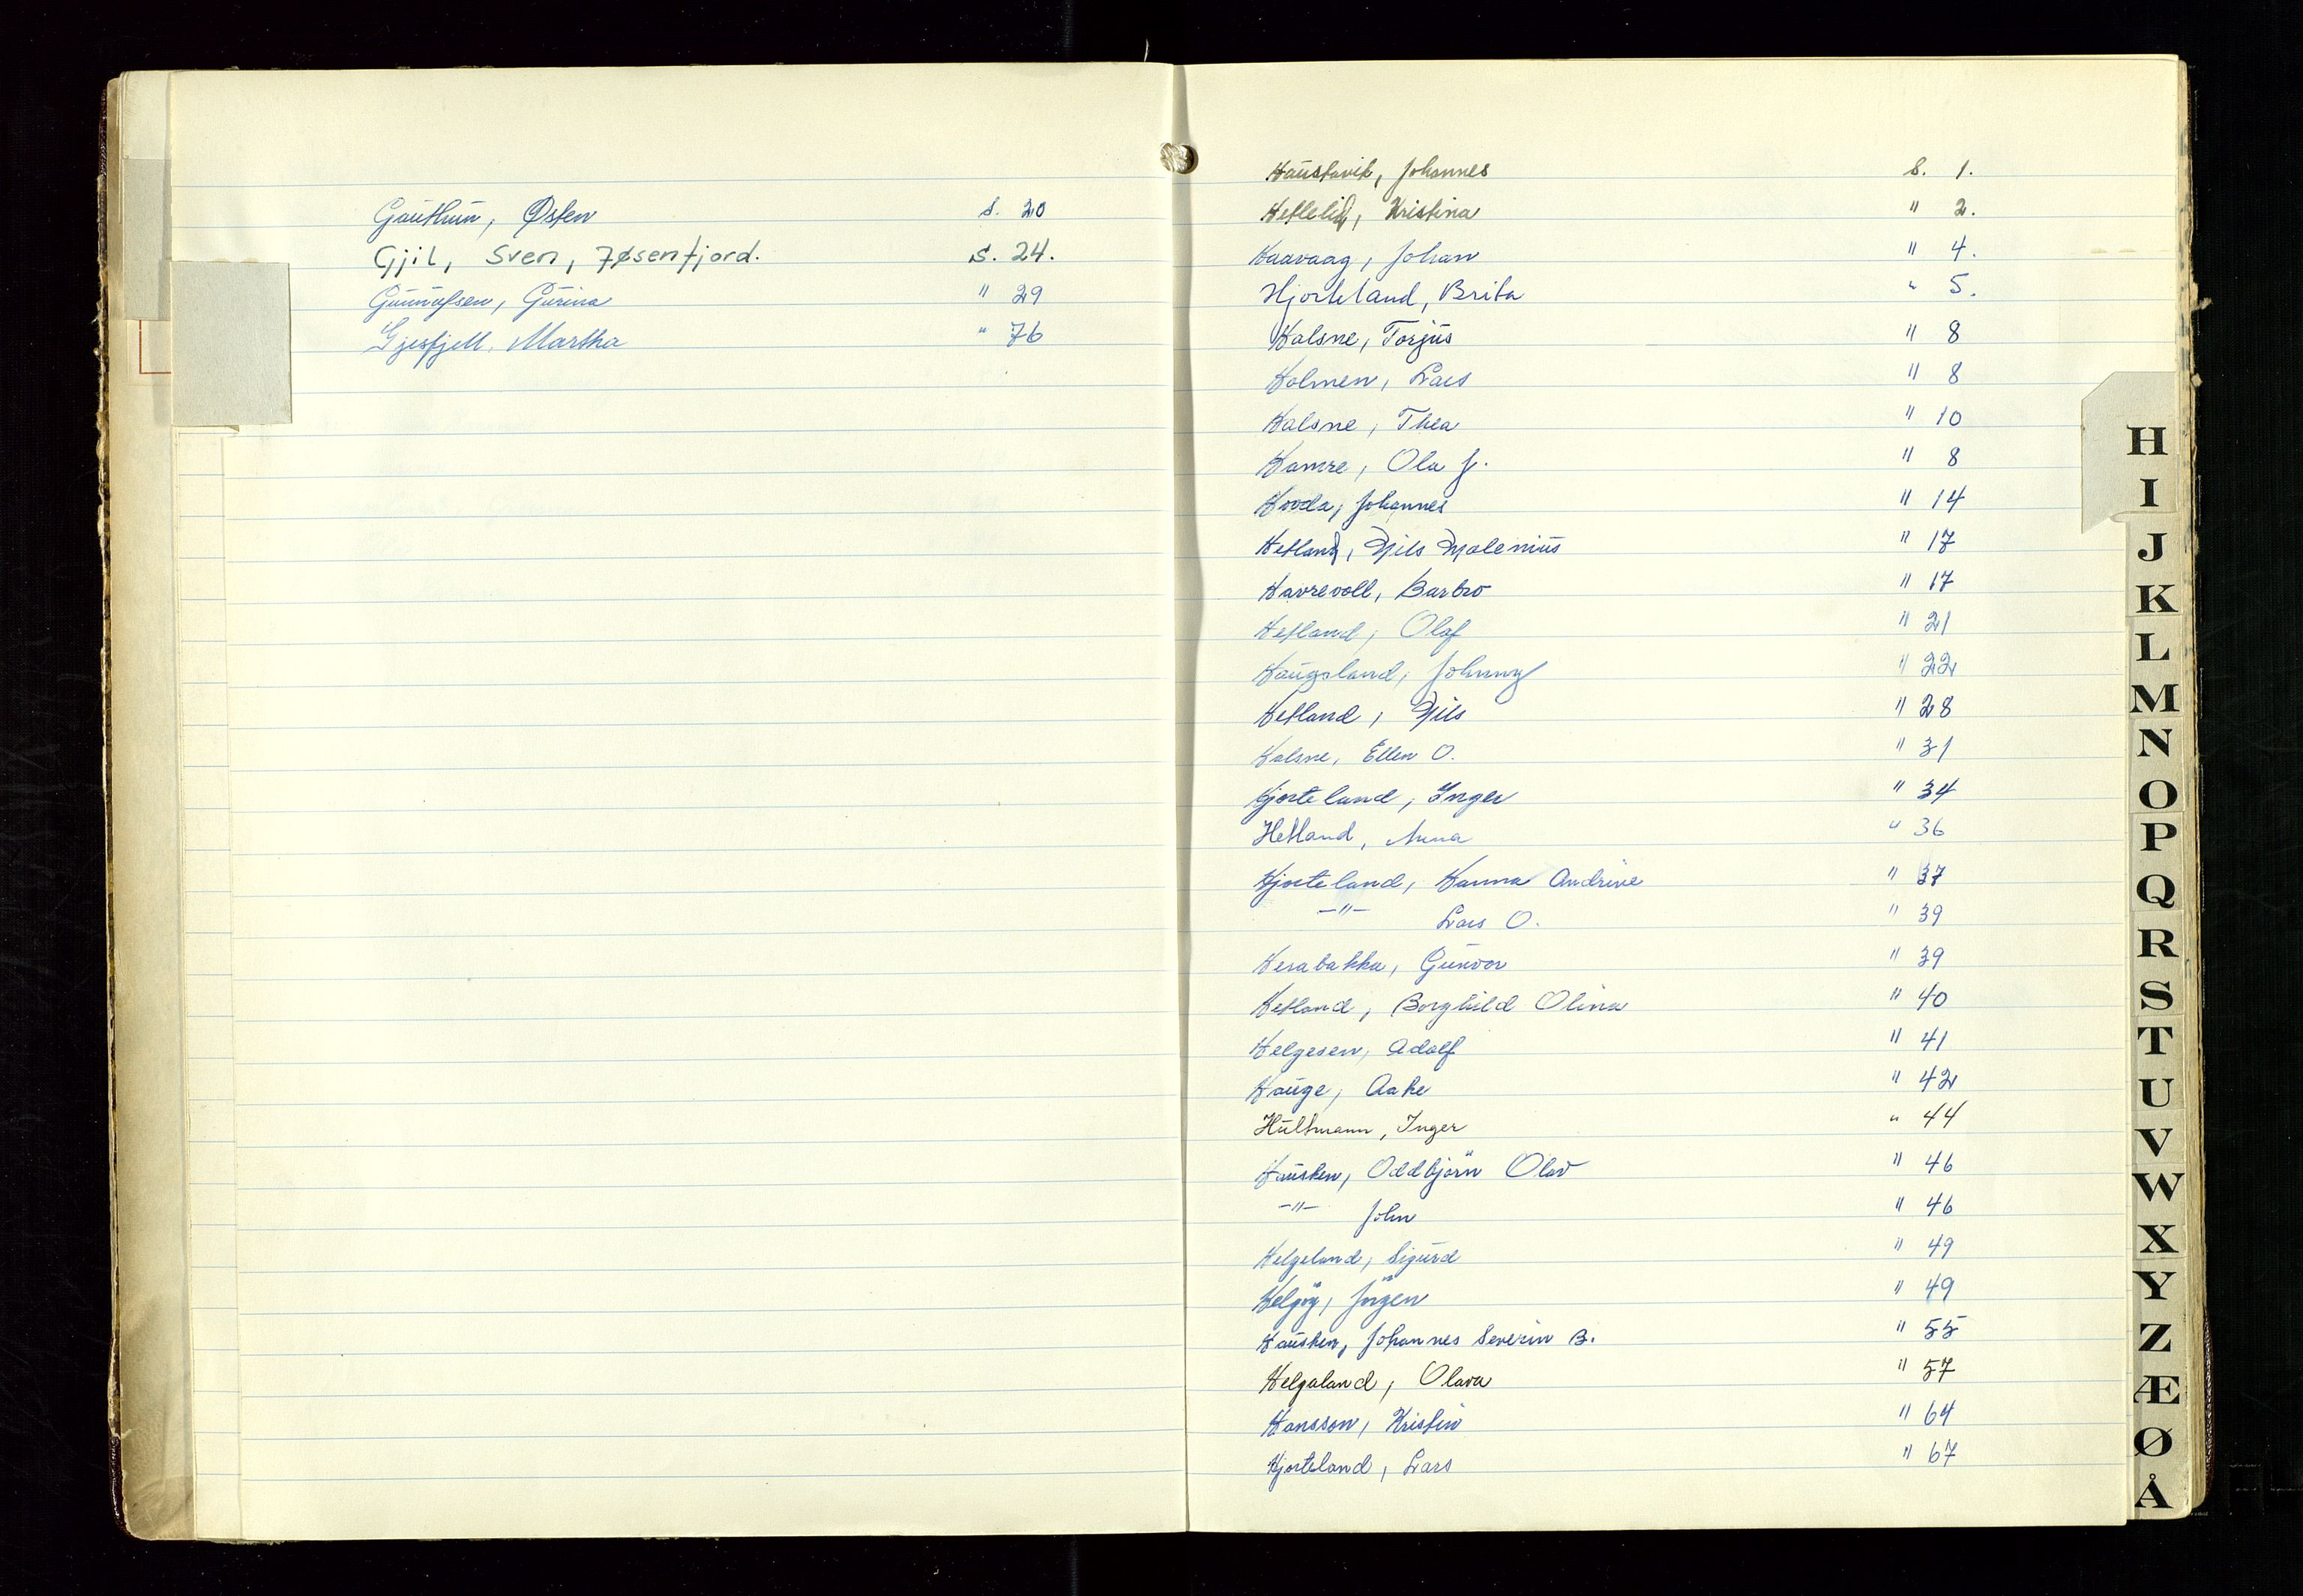 Gauthun, Østen s. 20
Gjil, Sven, Jøsenfjord. s. 24.
Gunnufsen, Gurina " 29
Gjesfjell, Martha " 76
Haustavik, Johannes s. 1.
Hetlelid, Kristina " 2.
Haavaag, Johan " 4.
Hjorteland, Brita " 5.
Halsne, Torjus " 8
Holmen, Lars " 8
Halsne, Thea " 10
Hamre, Ola J. " 8
Hovda, Johannes " 14
Hetland, Nils Malenius " 17
Havrevoll, Barbro " 17
Hetland, Olaf " 21
Haugaland, Johnny " 22
Hetland, Nils " 28
Halsne, Ellen O. " 31
Hjorteland, Inger " 34
Hetland, Anna " 36
Hjorteland, Hanna Andrine " 37
-"- Lars O. " 39
Herabakka, Gunvor " 39
Hetland, Borghild Olina " 40
Helgesen, Adolf " 41
Hauge, Aake " 42
Hultmann, Inger " 44
Hausken, Oddbjörn Olav " 46
-"- John " 46
Helgeland, Sigurd " 49
Helgöy, Jörgen " 49
Hausken, Johannes Severin B. " 55
Helgaland, Olava " 57
Hansson, Kristin " 64
Hjorteland, Lars " 67
H
I
J
K
L
M
N
O
P
Q
R
S
T
U
V
W
X
Y
Z
Æ
Ø
Å